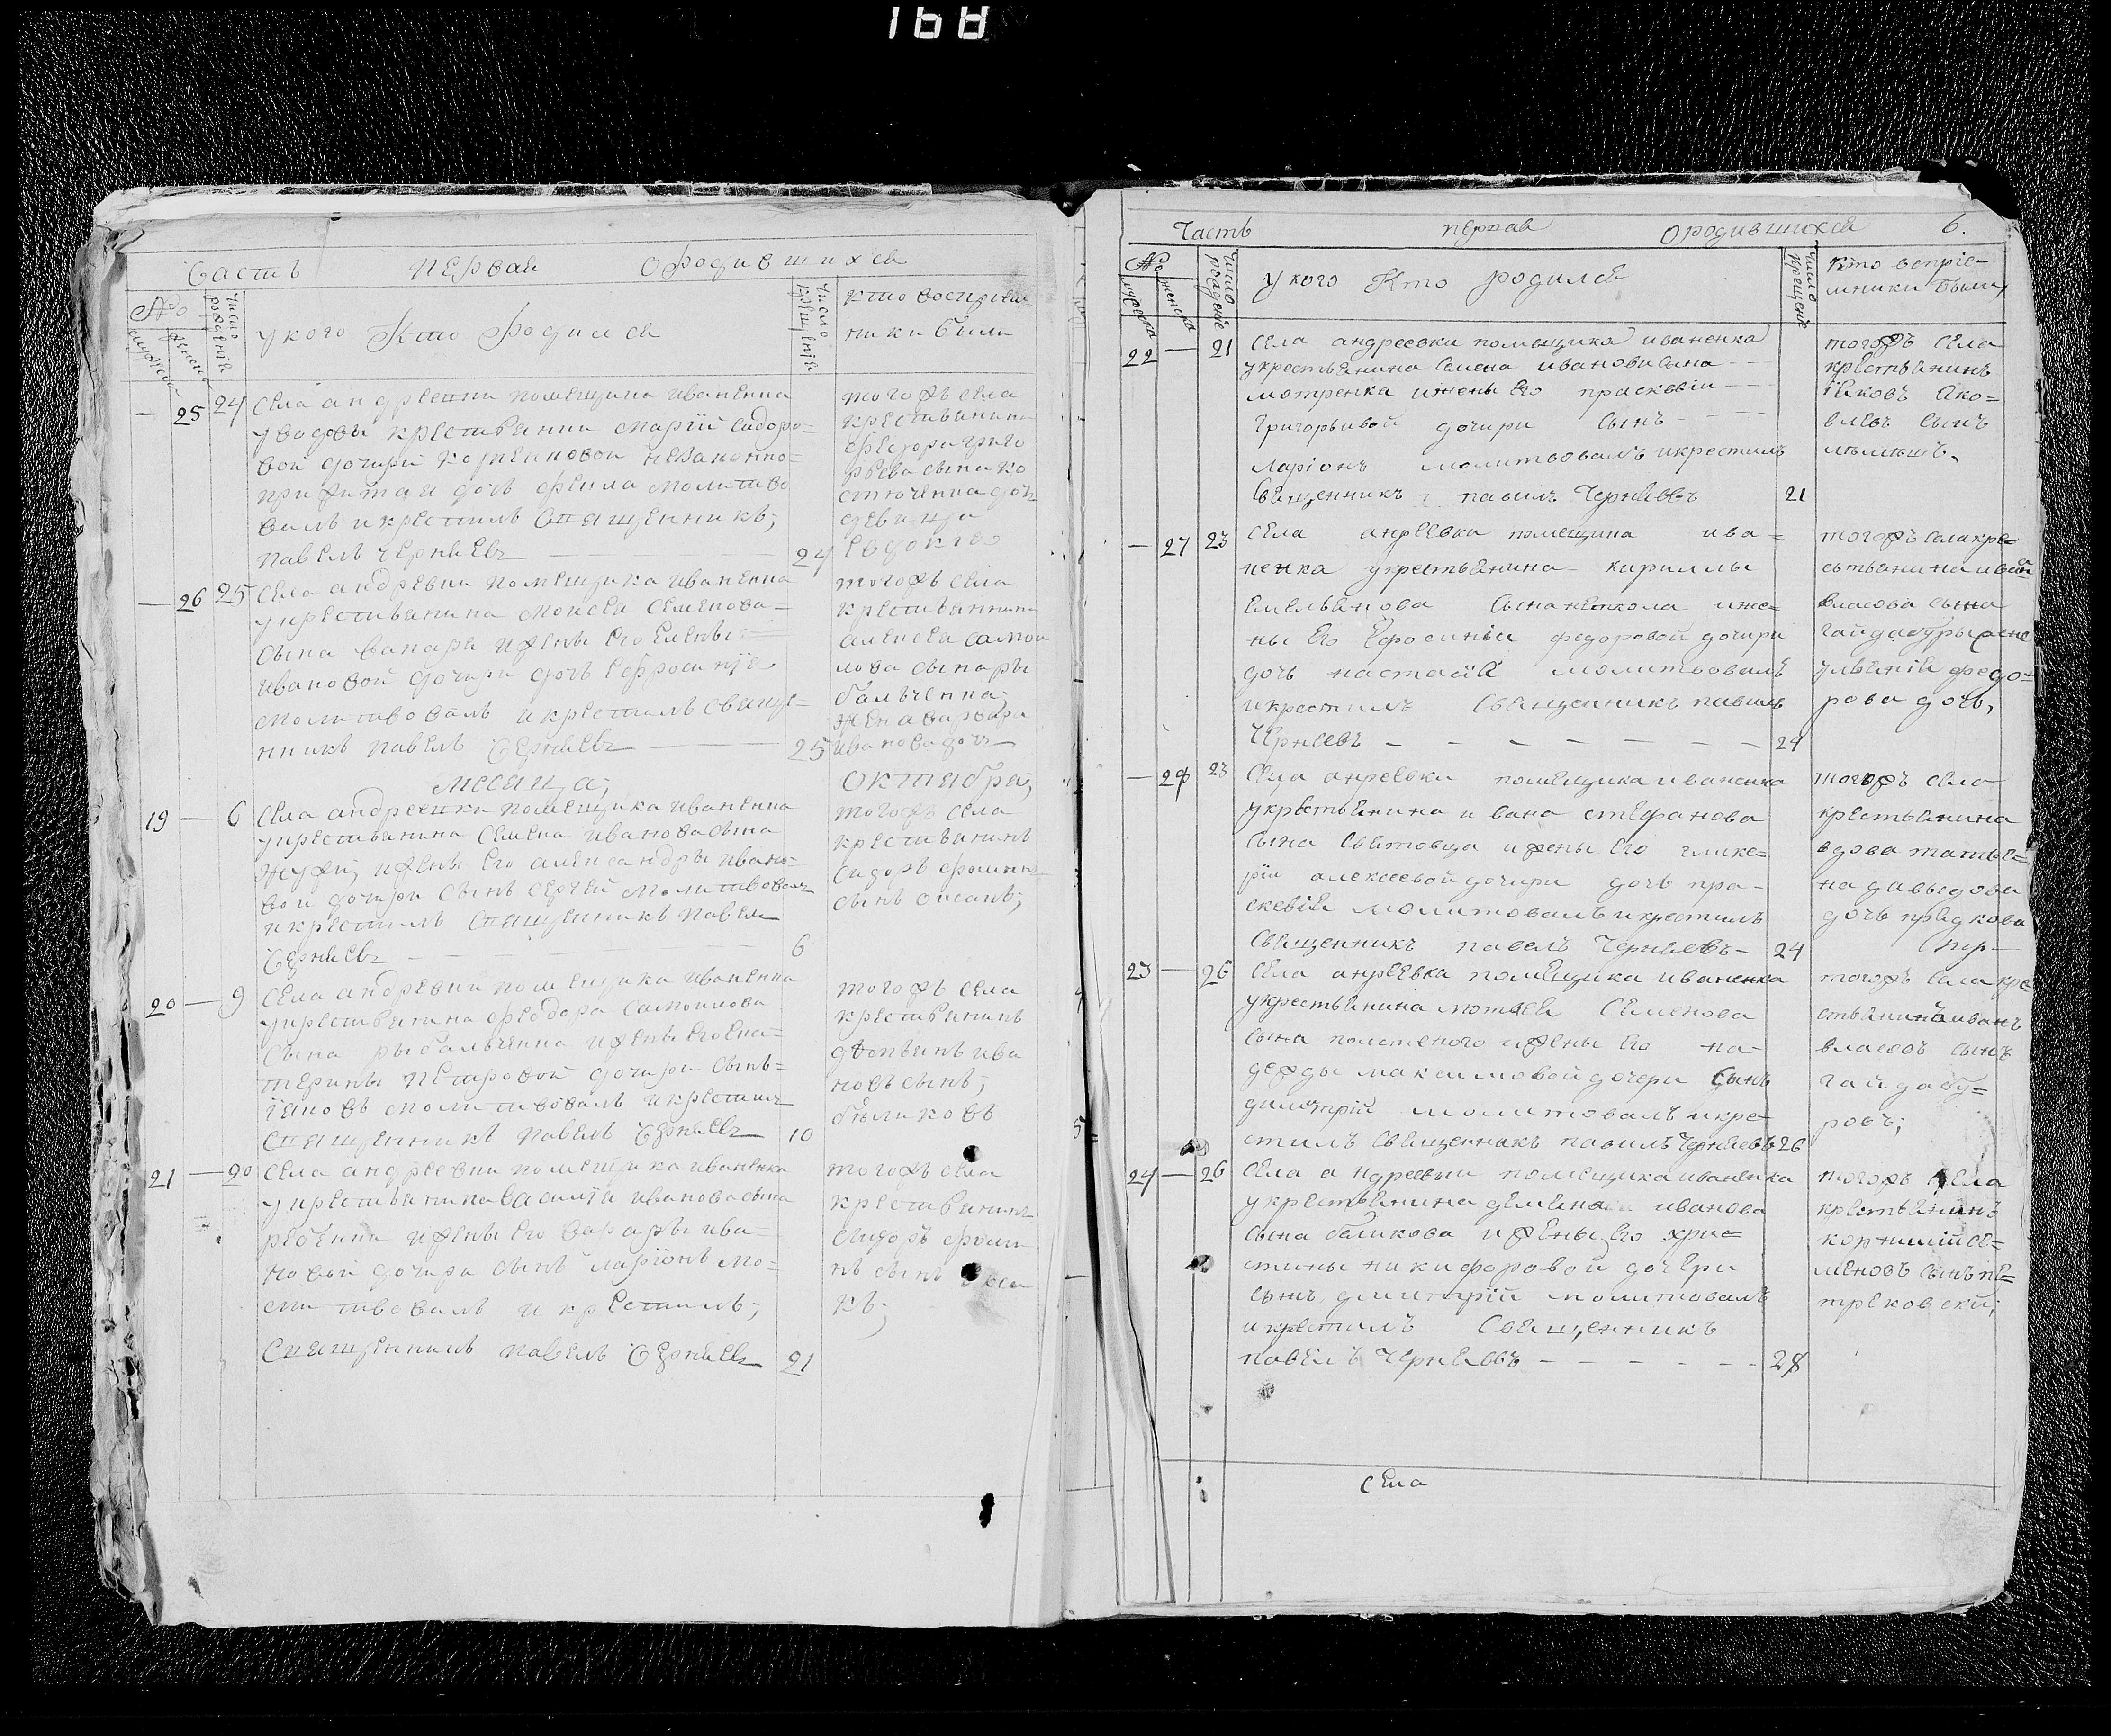 168
Часть первая ородившихся
№ число рождения укого Кто Родился число крещения кто восприем
мужеска женска ники были
— 25 24 Села андреевки помещика иваненка
увдовы крестьянки марїй сидоро=
вой дочири незаконно=
прижитая дочь молитво
валъ и крестилъ Священникъ;
павелъ Черняевъ 24
тогожъ села
крестьянина
федора григо
рьева сына ко
дочь
девица
Евдокия
— 26 25 Села андревки помещика иваненка
укрестьянина Моисея Семенова=
сына ижены его Елены=
ивановой дочири дочь Ефросинїя
молитвовалъ и крестилъ Свяще=
нникъ павелъ Черняевъ 25
тогожъ села
крестьянина
алексея самои
лова сына ры
бальченка;
жена варвара
иванова дочь
месяца; октября;
19 — 6 Села андреевки помещика иваненка
укрестьянина Семена иванова сына
ижены его александры ивано=
вой дочири сынъ сергей молитвовалъ
и крестилъ Священникъ павелъ
Черняевъ 6
тогожъ села
крестьянинъ
сидоръ фоминъ
сынъ
20 — 9 Села андревки помещика иваненка
укрестьянина феодора самоилова
сына рыбальченка ижены его ека=
терины петровой дочири сынъ=
їяковъ молитвовалъ и крестилъ
Священникъ павелъ Черняевъ 10
тогожъ села
крестьянинъ
ива
новъ сынъ;
бѣликовъ
21 — 20 Села андреевки помещика иваненка
укрестьянина Василїя иванова сына
ижены его варвары ива=
новой дочири сынъ ларїонъ мо=
литвовалъ и крестилъ;
Священникъ павелъ Черняевъ 21
тогожъ села
крестьянинъ
Сидоръ фоми
нъ сынъ
къ;
Часть первая ородившихся 6.
№ число рождение укого Кто родился число крещение Кто всприе=
мужеска женска мники были,
22 — 21 Села андреевки помещика иваненка
укрестьянина Семена иванова сына
мотренка ижены Его праскевіи
григорьивой дочири сынъ
ларіонъ молитвовалъ икрестилъ
Священникъ павилъ Черняевъ 21
тогожъ села
крестьянинъ
їяковъ яко=
влевъ сынъ
— 27 23 Села анреевки помещика ива=
ненка укрестьянина кириллы
Емельянова сына ижe=
ны Его Ефросиньи федоровой дочири
дочь настасїя молитвовалъ
икрестилъ Священникъ павилъ
Черняевъ 24
тогожъ села кре=
стьянина ива
власова сына
гайдабуры жена
ульянія федо=
рова дочь,
— 28 23 Села анреевки помещика иваненка
укрестьянина ивана стефанова
сына ижены Его глике=
ріи алексеевой дочири дочь пра=
скевія молитовалъ икрестилъ
Священникъ павелъ Черняевъ 24
тогожъ села
крестьянина
вдова татья=
на давыдова
дочь
23 — 26 Села анреевка помещика иваненка
укрестьянина Семенова
сына ижены Его на=
дежды максимовой дочери сынъ
димитрій молитовалъ икре=
стилъ Священникъ павилъ Черняевъ 26
тогожъ села кре
стьянина иванъ
власовъ сынъ
гайдабу=
ровъ;
24 — 26 Села андреевки помещика иваненка
укрестьянина демяна иванова
сына бѣликова ижены Его хри=
стины никифоровой дочери
сынъ димитрїй молитовалъ
икрестилъ Священникъ
павелъ Черняевъ 28
тогожъ села
крестьянинъ
корнилий се=
меновъ сынъ пе=
трековскій;
села